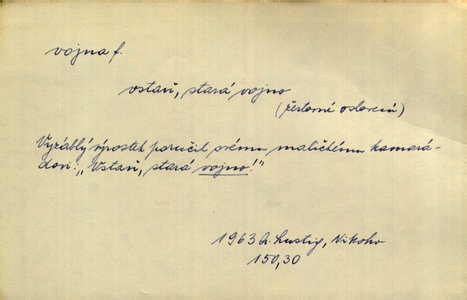 vojna f.
vstaň, stará vojno
(žertovné oslovení)
Vyzáblý výrostek poručil svému maličkému kamará-
dovi: „Vstaň, stará vojno!"
1963 A. Lustig, Nikoho
150,30